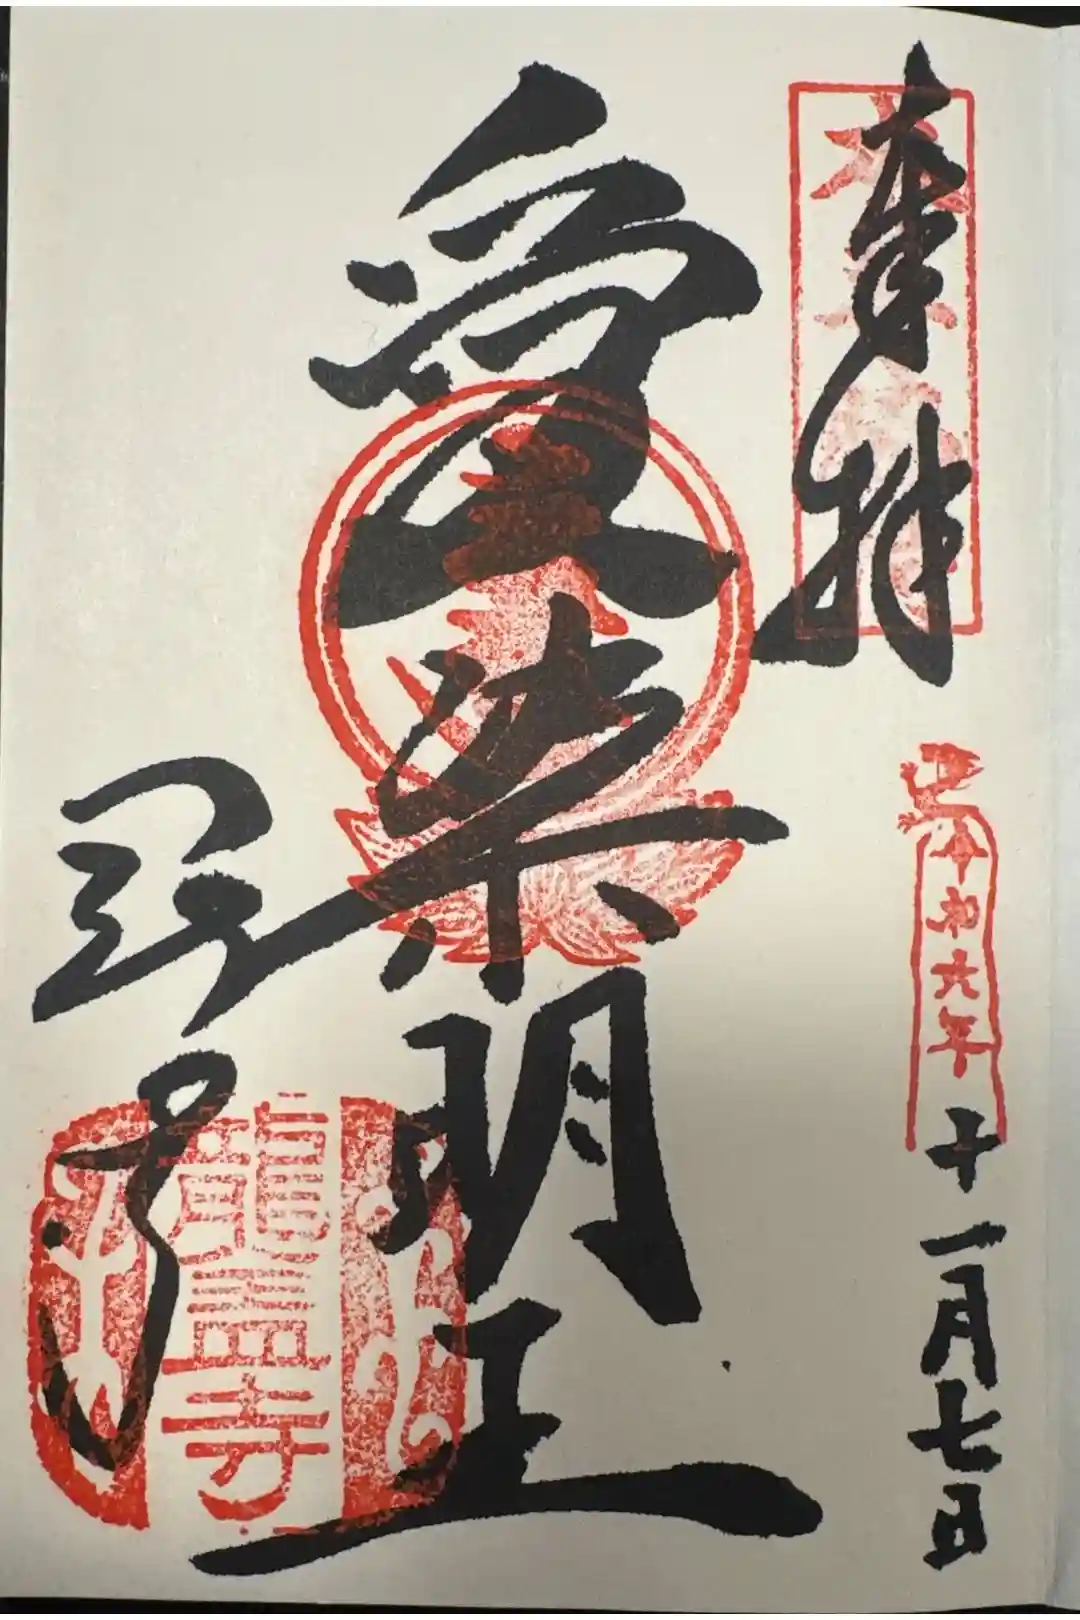 奉拝
令和六年十一月七日
愛染明王
龍蓋寺